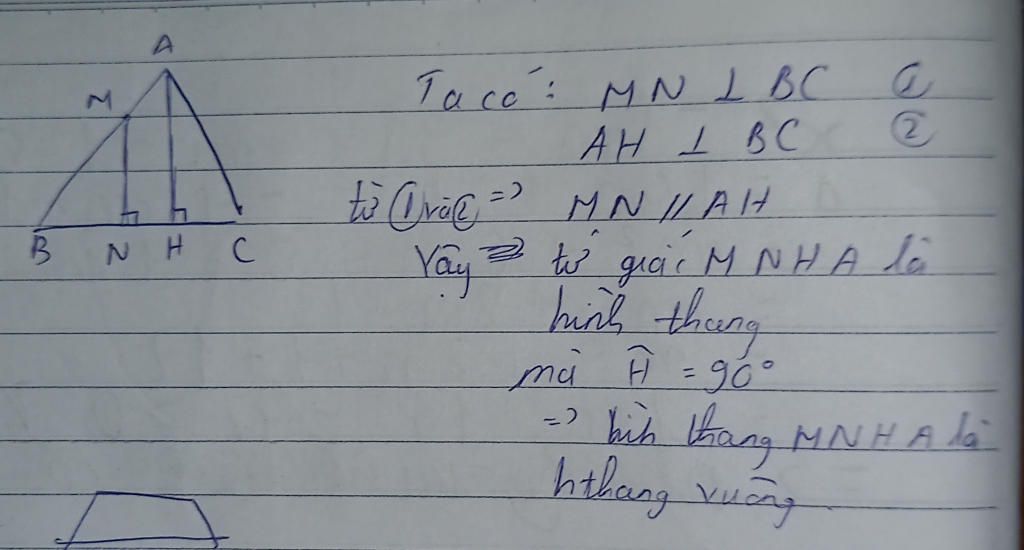 A
M
B N H C
Ta có: MN ⊥ BC ①
AH ⊥ BC ②
từ ① và ② => MN // AH
Vậy tứ giác MNHA là
hình thang
mà Ĥ = 90°
=> hình thang MNHA là
hthang vuông